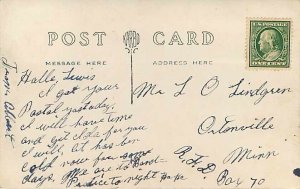 POST CARD
MESSAGE HERE
ADDRESS HERE
U.S. POSTAGE
ONE CENT
Hallo, Lewis
I got your
Postal yestoday,
I will have time
and get it for you
I will, it has ben
cold now for some
days. We are to Band
Practice to night
from Albert
Mr L O Lindgren
Ortonville
Minn
R.F.D
Box 70